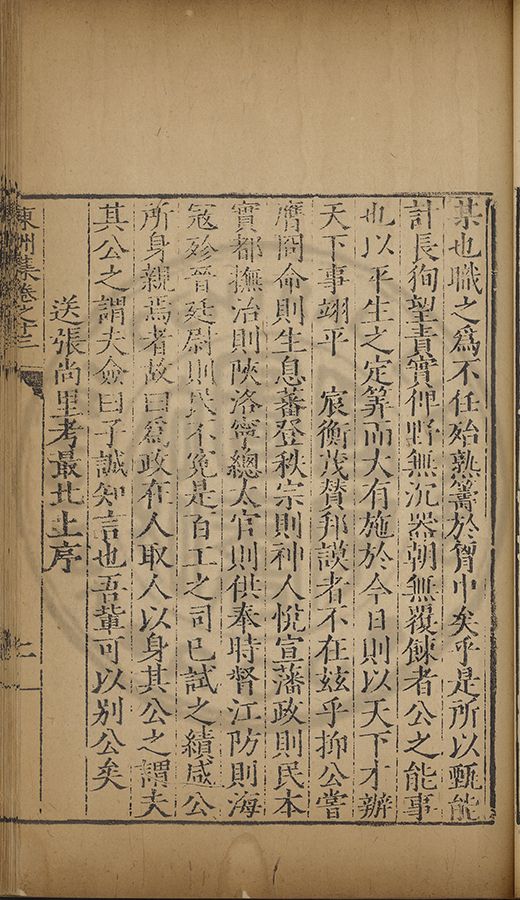 某也職之爲不任殆熟籌於胷中矣乎是所以甄能
計長徇望責實俾野無沉器朝無覆餗者公之能事
也以平生之定筭而大有施於今日則以天下才辦
天下事翊平 宸衡茂賛邦謨者不在兹乎抑公嘗
膺冏命則生息蕃登秩宗則神人悅宣藩政則民本
實都撫治則陜洛寧總太官則供奉時督江防則海
寇殄晉廷尉則民不寃是百工之司已試之績咸公
所身親焉者故曰爲政在人取人以身其公之謂夫
其公之謂夫僉曰子誠知言也吾輩可以别公矣
送張尚里考最北上序
東洲集卷之十三
二